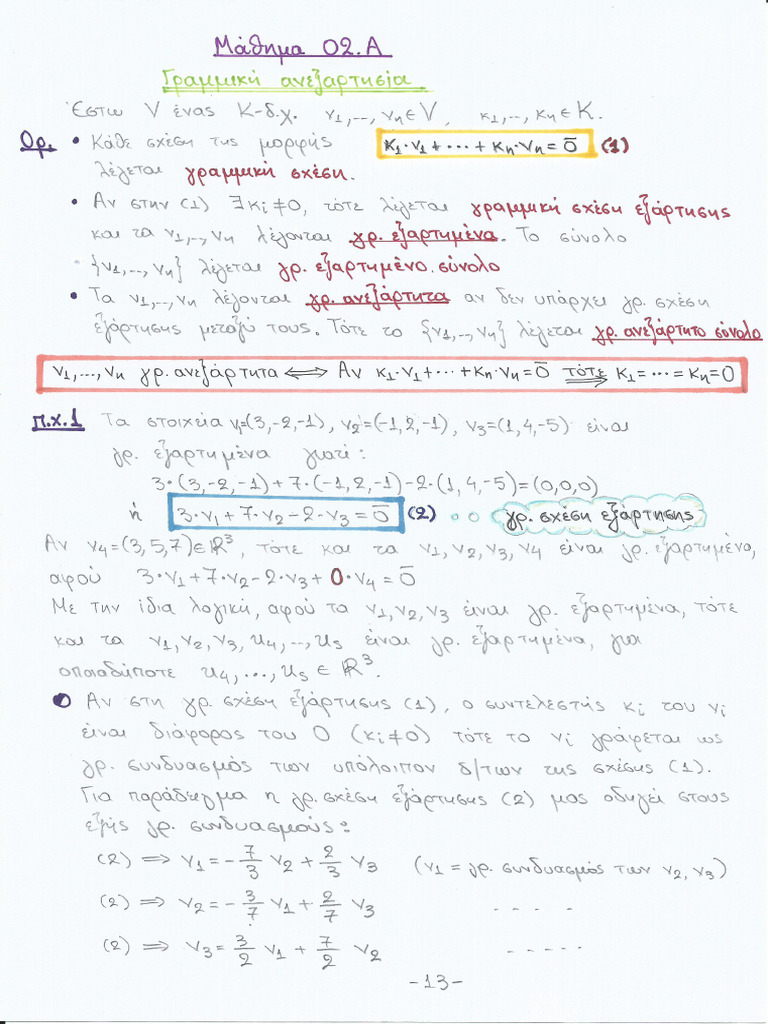 Μάθημα 02.Α
Γραμμική ανεξαρτησία.
Έστω V ένας K-δ.χ. v₁,..,vₙ∈V, κ₁,..,κₙ∈K.
Ορ. • Κάθε σχέση της μορφής κ₁·v₁+···+κₙ·vₙ=0̄ (1)
λέγεται γραμμική σχέση.
• Αν στην (1) ∃κᵢ≠0, τότε λέγεται γραμμική σχέση εξάρτησης
και τα v₁,..,vₙ λέγονται γρ. εξαρτημένα. Το σύνολο
{v₁,..,vₙ} λέγεται γρ. εξαρτημένο σύνολο
• Τα v₁,..,vₙ λέγονται γρ. ανεξάρτητα αν δεν υπάρχει γρ. σχέση
εξάρτησης μεταξύ τους. Τότε το {v₁,..,vₙ} λέγεται γρ. ανεξάρτητο σύνολο
v₁,...,vₙ γρ. ανεξάρτητα ⟺ Αν κ₁·v₁+···+κₙ·vₙ=0̄ τότε ⟹ κ₁=···=κₙ=0
π.χ.1 Τα στοιχεία v₁=(3,-2,-1), v₂=(-1,2,-1), v₃=(1,4,-5) είναι
γρ. εξαρτημένα γιατί:
3·(3,-2,-1)+7·(-1,2,-1)-2·(1,4,-5)=(0,0,0)
ή 3·v₁+7·v₂-2·v₃=0̄ (2) γρ. σχέση εξάρτησης
Αν v₄=(3,5,7)∈ℝ³, τότε και τα v₁,v₂,v₃,v₄ είναι γρ. εξαρτημένα,
αφού 3·v₁+7·v₂-2·v₃+0·v₄=0̄
Με την ίδια λογική, αφού τα v₁,v₂,v₃ είναι γρ. εξαρτημένα, τότε
και τα v₁,v₂,v₃,u₄,..,u₅ είναι γρ. εξαρτημένα, για
οποιαδήποτε u₄,...,u₅∈ℝ³.
• Αν στη γρ. σχέση εξάρτησης (1), ο συντελεστής κᵢ του vᵢ
είναι διάφορος του 0 (κᵢ≠0) τότε το vᵢ γράφεται ως
γρ. συνδυασμός των υπόλοιπον δ/των της σχέσης (1).
Για παράδειγμα η γρ. σχέση εξάρτησης (2) μας οδηγεί στους
εξής γρ. συνδυασμούς:
(2) ⟹ v₁=-7/3 v₂+2/3 v₃ (v₁=γρ. συνδυασμός των v₂,v₃)
(2) ⟹ v₂=-3/7 v₁+2/7 v₃ - - - - -
(2) ⟹ v₃=3/2 v₁+7/2 v₂ - - - - -
-13-